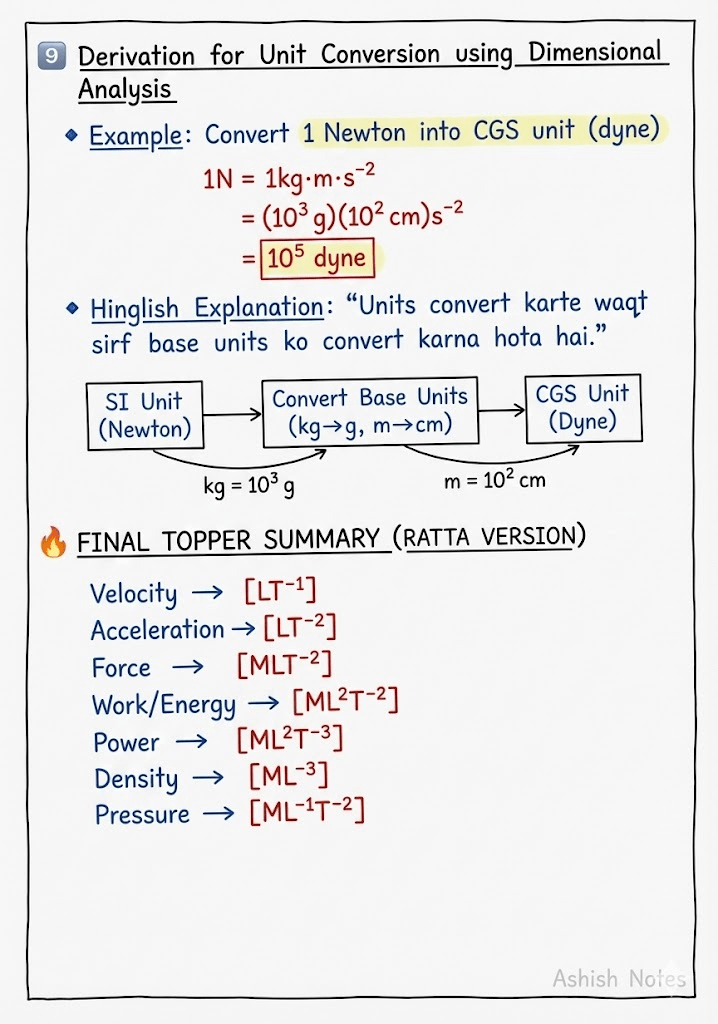 9 Derivation for Unit Conversion using Dimensional
Analysis
◆ Example: Convert 1 Newton into CGS unit (dyne)
1N = 1kg·m·s⁻²
= (10³ g)(10² cm)s⁻²
= 10⁵ dyne
◆ Hinglish Explanation: “Units convert karte waqt
sirf base units ko convert karna hota hai.”
SI Unit
(Newton)
Convert Base Units
(kg→g, m→cm)
CGS Unit
(Dyne)
kg = 10³ g
m = 10² cm
🔥 FINAL TOPPER SUMMARY (RATTA VERSION)
Velocity → [LT⁻¹]
Acceleration → [LT⁻²]
Force → [MLT⁻²]
Work/Energy → [ML²T⁻²]
Power → [ML²T⁻³]
Density → [ML⁻³]
Pressure → [ML⁻¹T⁻²]
Ashish Notes